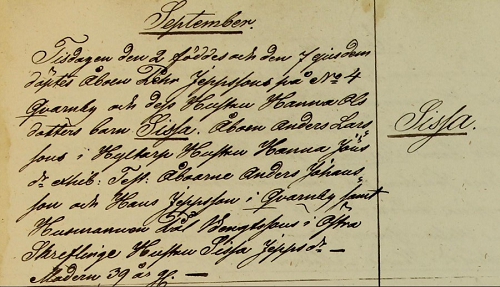 September.
Tisdagen den 2 föddes och den 7 ejusdem
döptes Åboen Pehr Jeppssons på No 4
Qvarnby och dess Hustru Hanna Ols
dotters barn Sissa. Åboen Anders Lars
sons i Hyltarp Hustru Hanna Jöns
dr Susc: Test: Åboarne Anders Johans
son och Hans Jeppsson i Qvarnby samt
Husmannen Pål Bengtssons i Östra
Skreflinge Hustru Sissa Jeppsdr —
Modern 39 år gl. —
Sissa.